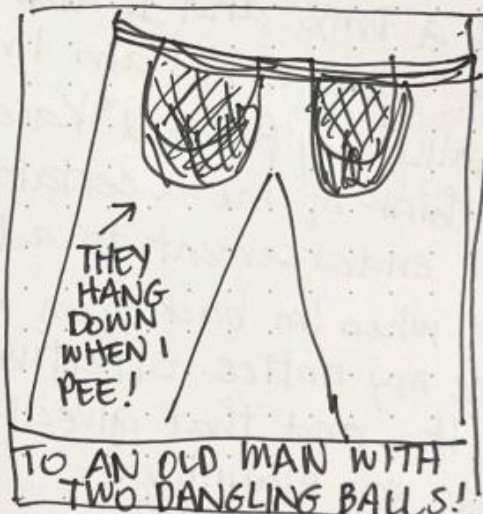 THEY
HANG
DOWN
WHEN I
PEE!
TO AN OLD MAN WITH
TWO DANGLING BALLS!